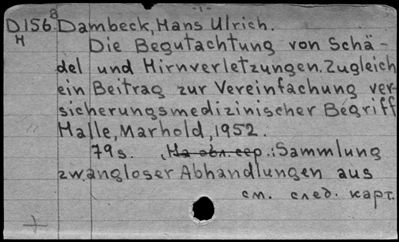 -1-
8
D156 Dambeck, Hans Ulrich.
H
Die Begutachtung von Schä-
del und Hirnverletzungen. Zugleich
ein Beitrag zur Vereinfachung ver-
sicherungsmedizinischer Begriff
Halle, Marhold, 1952.
79s. На обл. сер.: Sammlung
zwangloser Abhandlungen aus
см. след. карт.